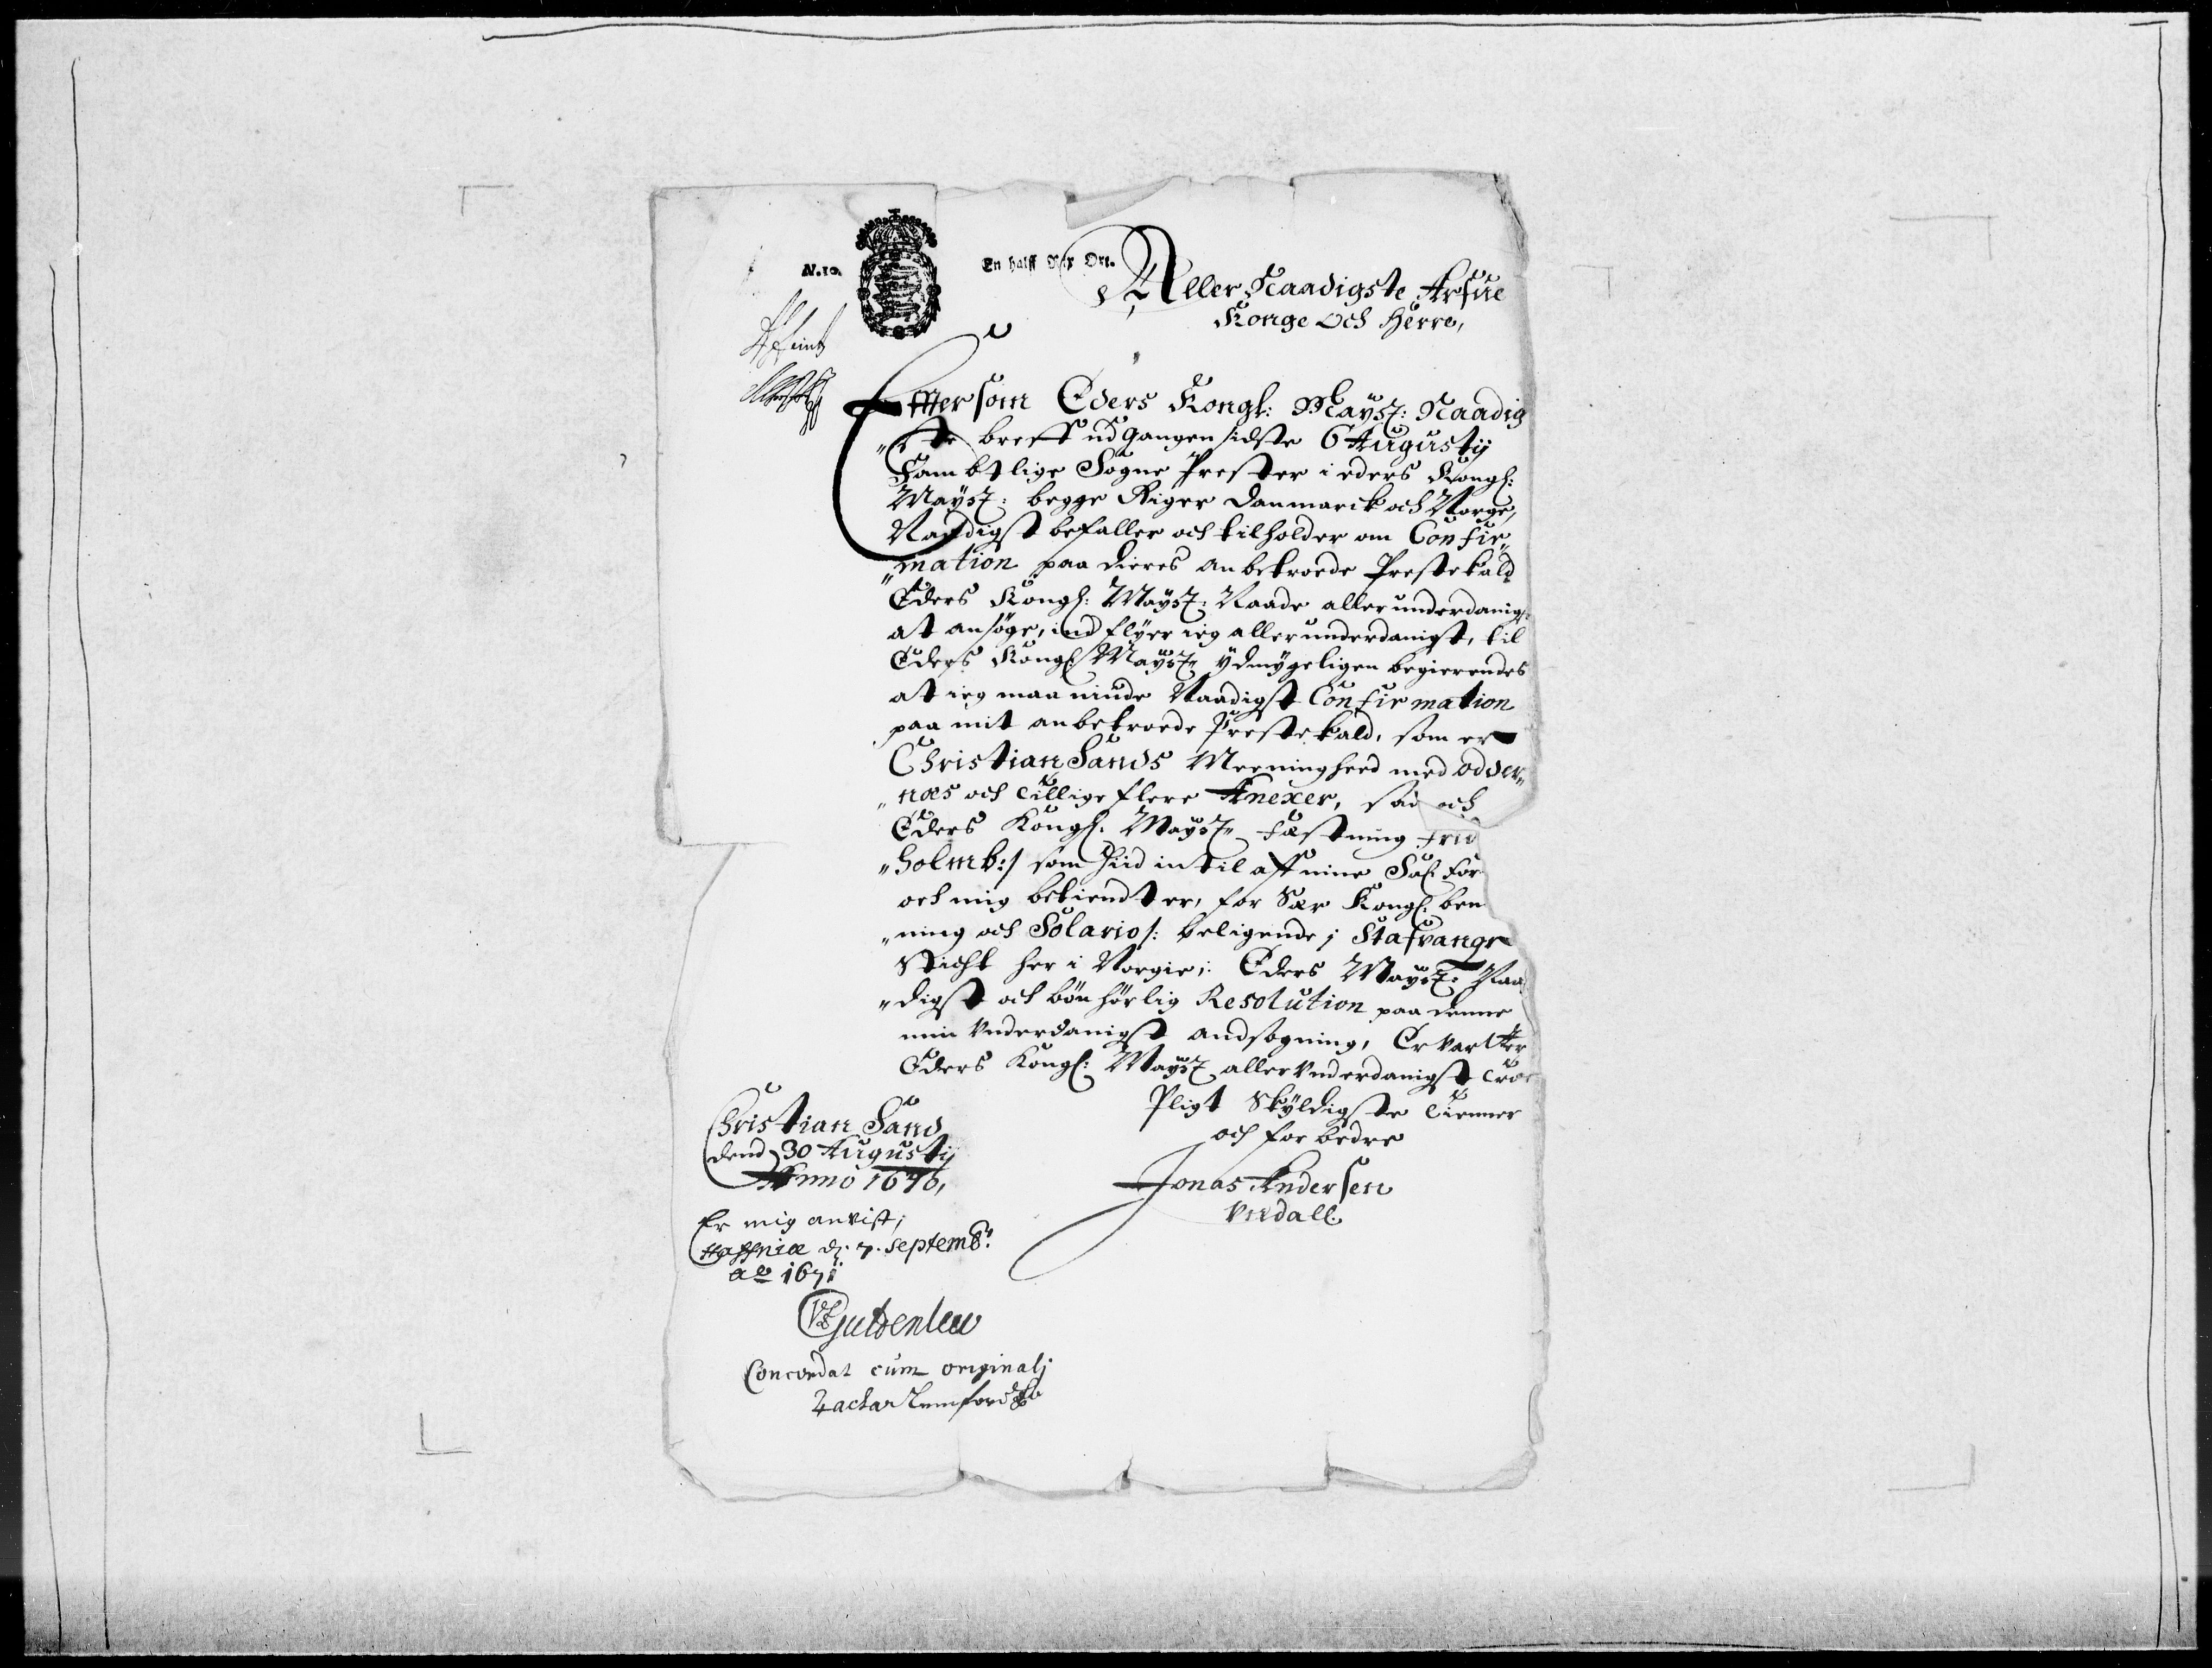 N. 10.
En halff Rix Ort.
Aller Naadigste Arfue
Konge Och Herre,
Effter som Eders Kongl: Mayst: Naadig
"ste breff udgangen sidste 6 Augustij
Sambtlige Sogne Prester i eders Kongl:
Mayst: begge Riger Danmarck och Norge,
Naadigst befaller och tilholder om Confir„
"mation paa dieres anbetroede Prestekald
Eders Kongl: Mayst: Naade allerunderdanigst
at ansøge, ind flyer ieg allerunderdanigst, til
Eders Kongl: Mayst„ ydmygeligen begierendes
at ieg maa niude Naadigst Confirmation
paa mit anbetroede Prestekald, som er
Christian Sands Meenigheed med Odder„
"næs och tillige flere Anexer, saa och
Eders Kongl: Mayst„ Fæstning
"holmb:/ som hiid intil aff mine Sal: For
och mig betiendt er, for Sær Kongl: ben
"ning och Solario /: beligende i Stafvanger
Sticht her i Norgie; Eders Mayst: Naa
"digst och bønhørlig Resolution paa denne
min Underdanigst andsøgning, Ervarter
Eders Kongl: Mayst allerunderdanigst troe
Pligt Skyldigste Tienner
och forbedre
Christian Sand
dend 30 Augustij
Anno 1670,
Jonas Andersen
Undall.
Er mig anvist;
Haffniæ d: 7. Septemb:
Ao 1671
Guldenleu
Concordat cum originalj
Zachar